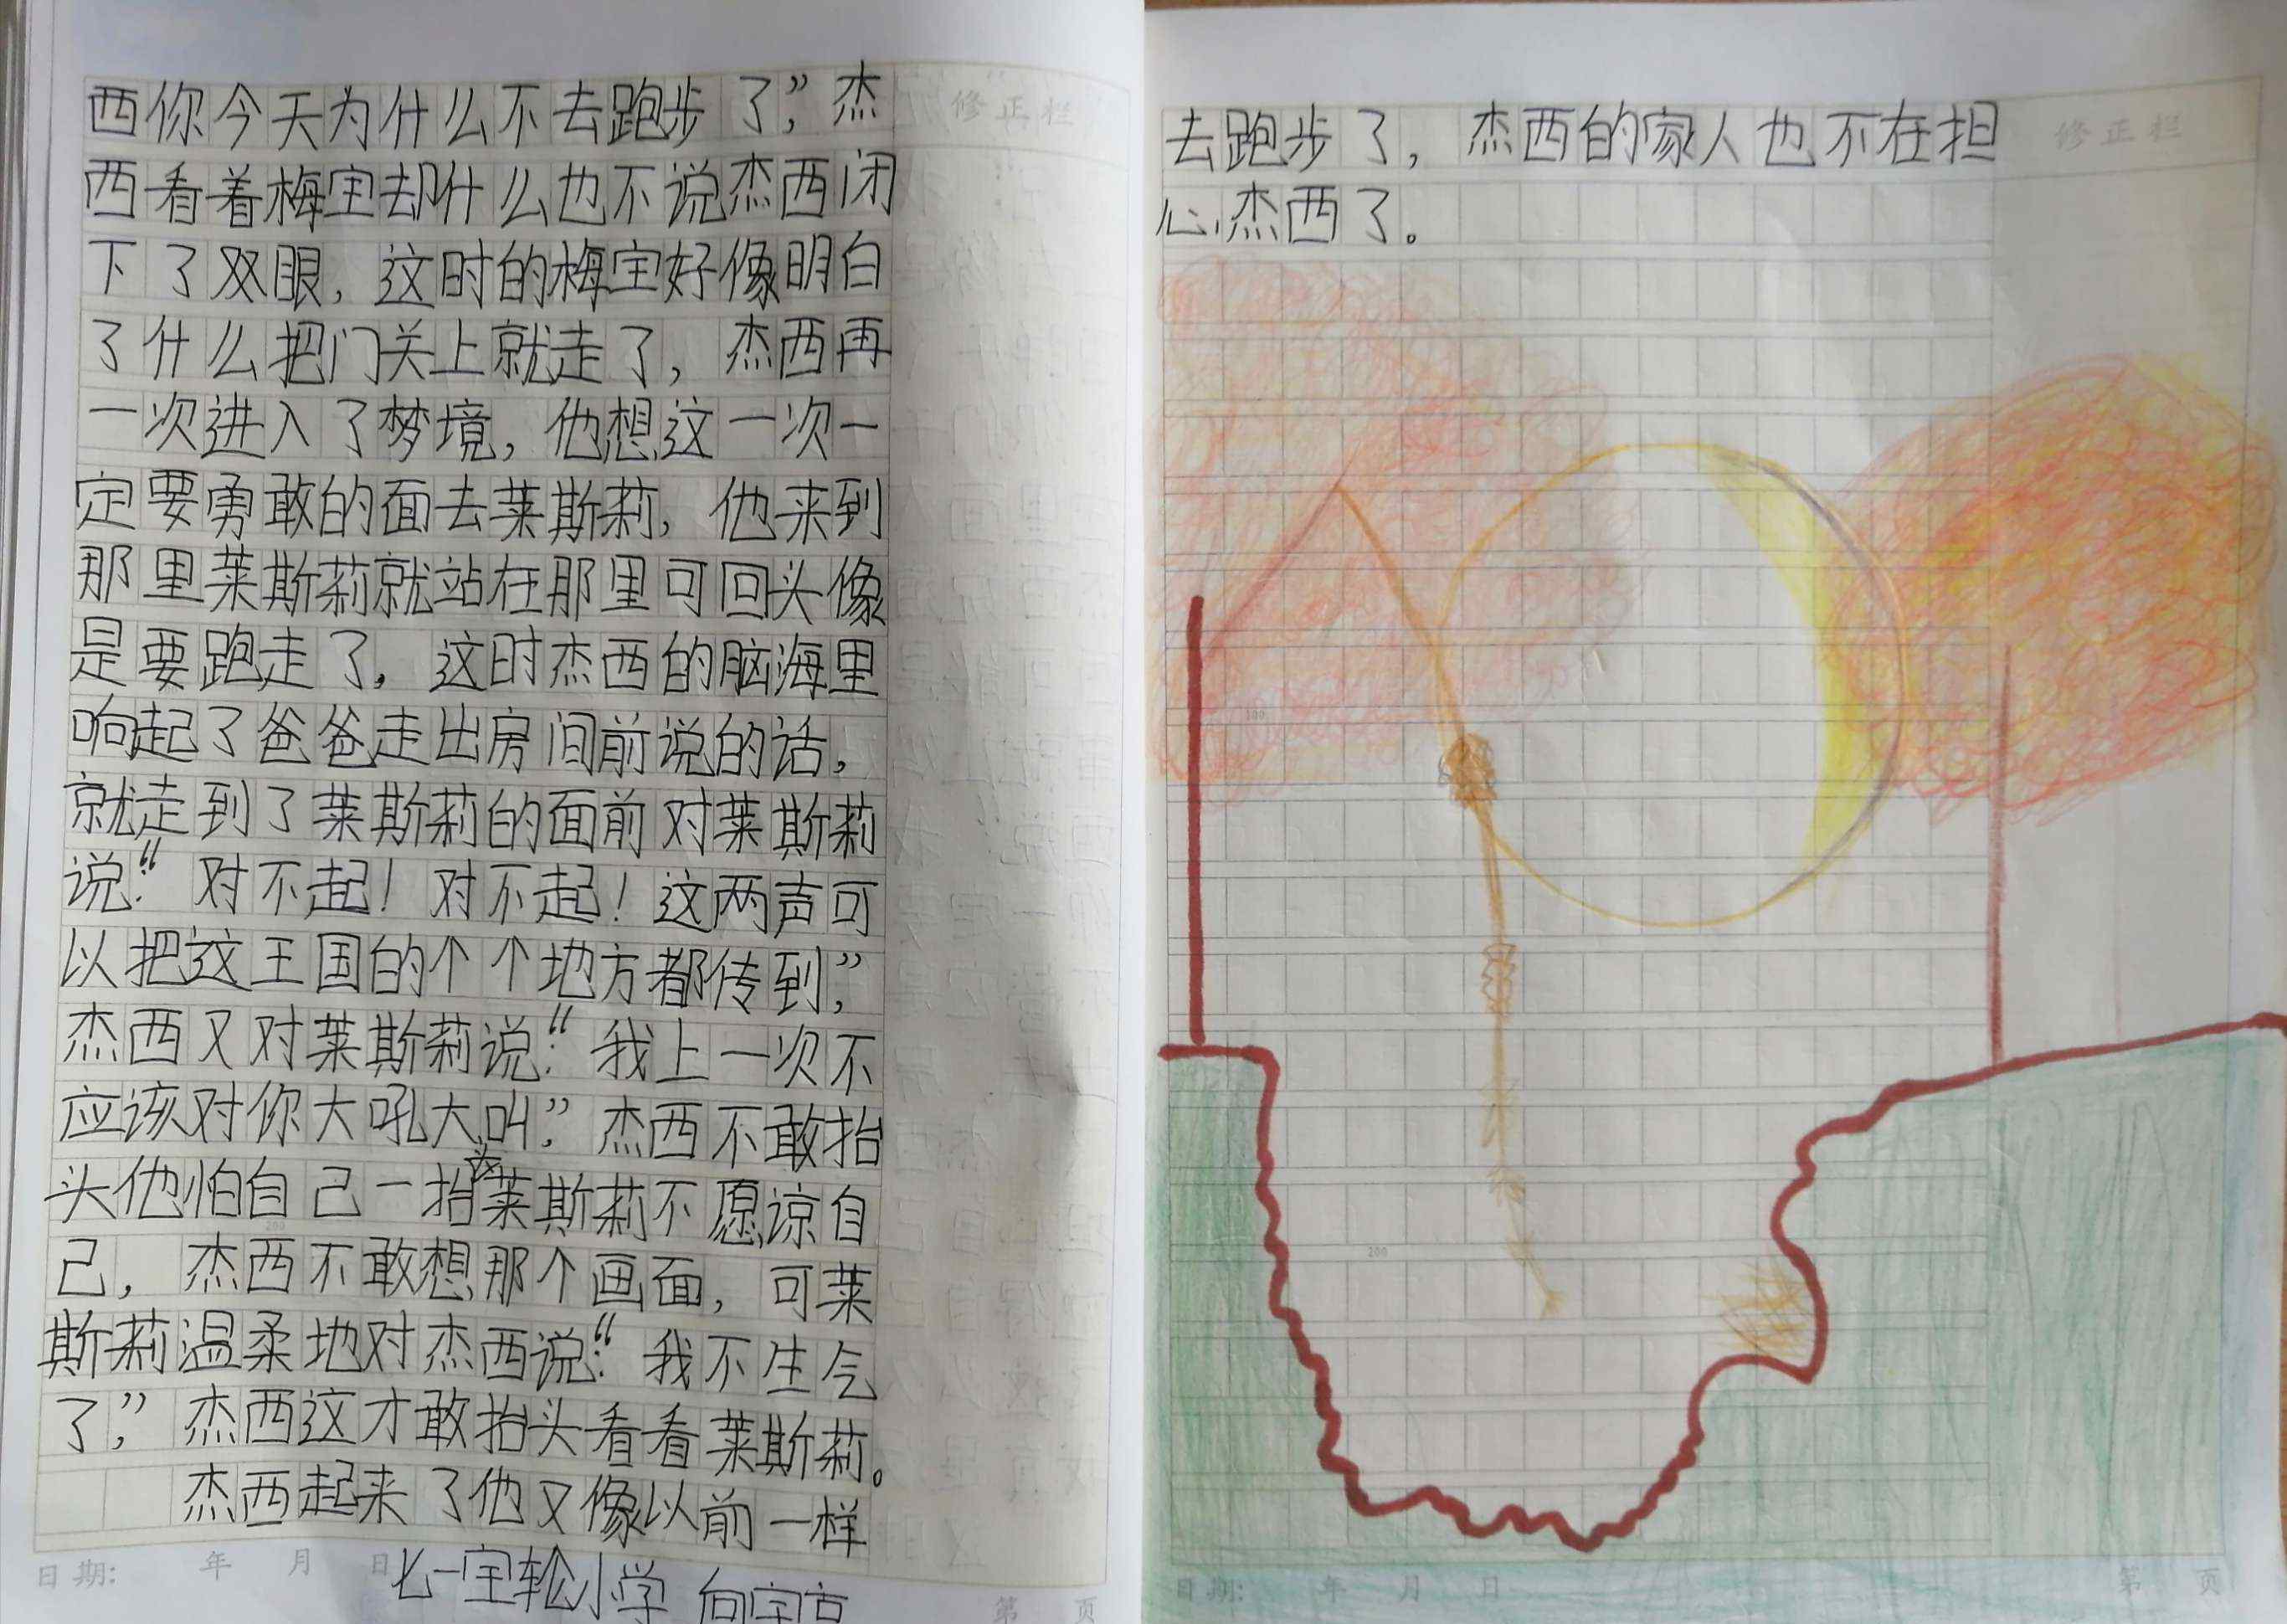 西你今天为什么不去跑步了”,杰
西看着梅宝却什么也不说杰西闭
下了双眼,这时的梅宝好像明白
了什么把门关上就走了,杰西再
一次进入了梦境,他想这一次一
定要勇敢的面去莱斯莉,他来到
那里莱斯莉就站在那里可回头像
是要跑走了,这时杰西的脑海里
响起了爸爸走出房间前说的话,
就走到了莱斯莉的面前对莱斯莉
说:“对不起!对不起!这两声可
以把这王国的个个地方都传到”,
杰西又对莱斯莉说:“我上一次不
应该对你大吼大叫”,杰西不敢抬
头他怕自己一抬头莱斯莉不愿谅自
己,杰西不敢想那个画面,可莱
斯莉温柔地对杰西说:“我不生气
了”,杰西这才敢抬头看看莱斯莉。
杰西起来了他又像以前一样
日期: 年 月 日
七一宝轮小学
第 页
修正栏
去跑步了,杰西的家人也不在担
心杰西了。
修正栏
100
200
日期: 年 月 日
第 页